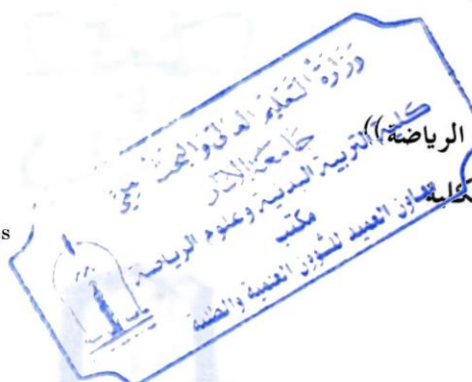 وزارة التعليم العالي والبحث العلمي
جامعة الانبار
كلية التربية البدنية وعلوم الرياضة
مكتب
معاون العميد للشؤون العلمية والطلبة
الرياضة))
s